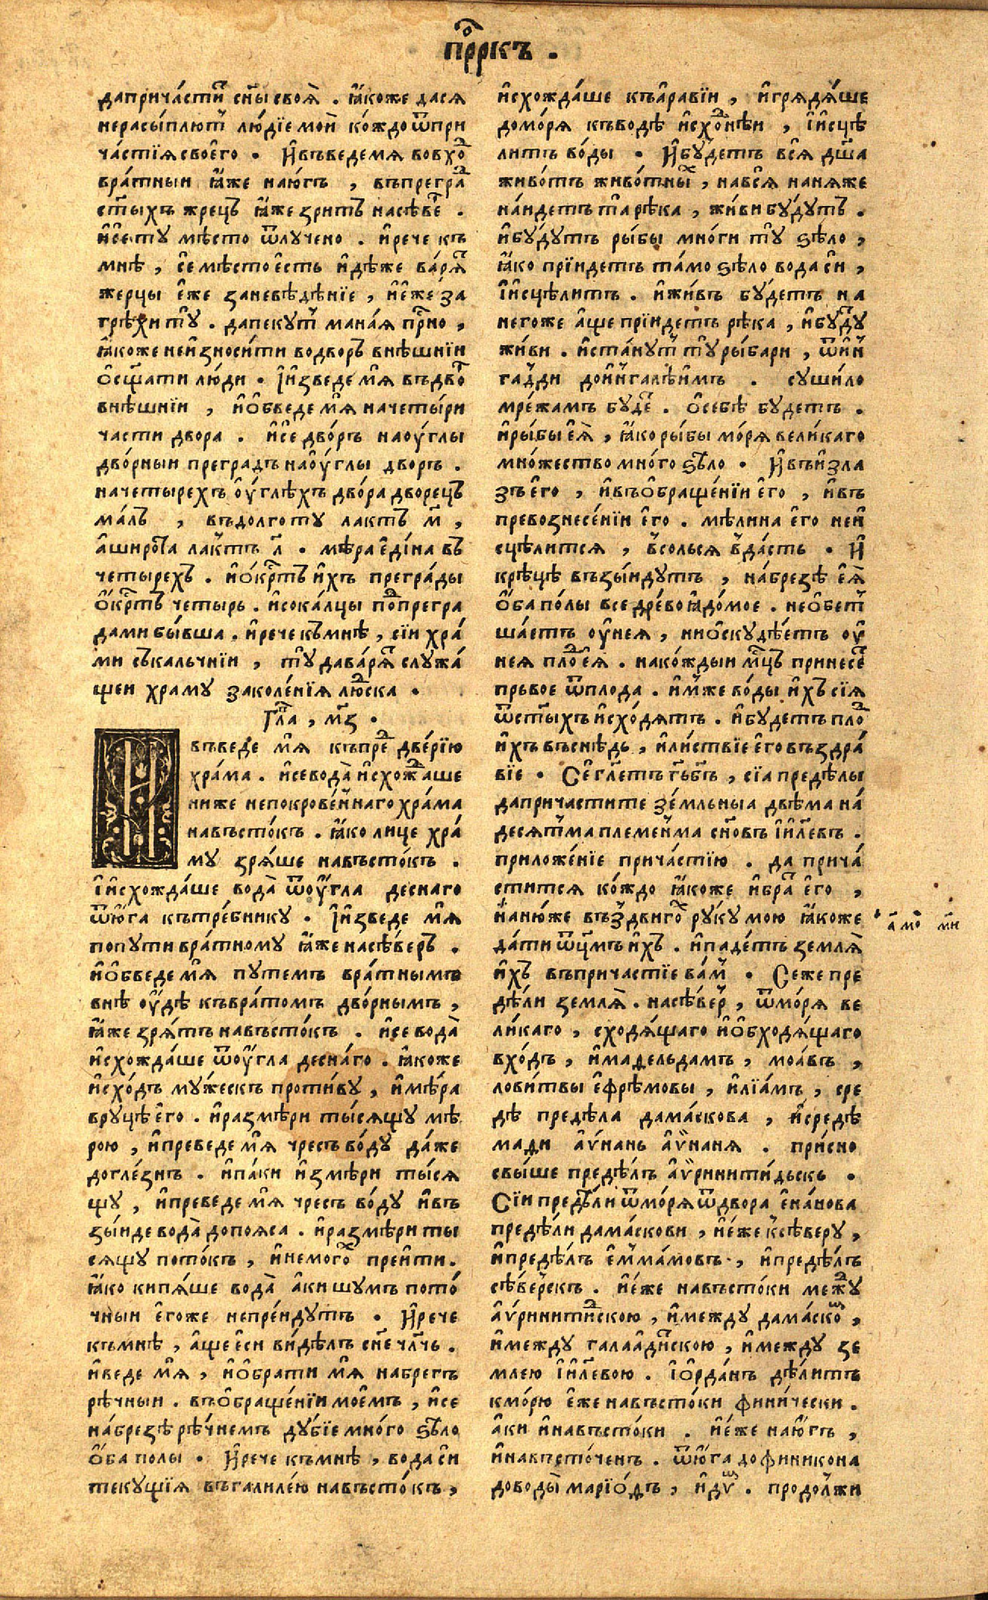 прⷪ҇ркъ .
дапричѧ́стиⷮ сн҃ы своѧ̀ . ꙗ҆́коже дасѧ
нерасы́плютⷭ҇ лю́дїе моѝ ко́ждо ѿ при
ча́стїѧ своего̀ . И҆въведе мѧ вовхоⷣ
вра́тныи ꙗ҆́же наю́гъ , въпреграⷣ
ст҃ы́хъ жрец꙽ ꙗ҆́же зрить насѣ́веⷬ .
и҆се́ ту мѣ́сто ѿлучено . и҆рече къ
мнѣ , се мѣ́сто є҆сть и҆дѣ́же варѧ́тⷮ
жерцы є҆́же заневѣ́дѣнїе , и҆є҆́же за
грѣхи ту . дапекутⷮ мана́ѧ прⷭ҇но ,
ꙗ҆́коже неи҆зноси́ти водворъ внѣ́шнїи
ѡ҆сщ҃ати лю́ди . І҆и҆зведе мѧ̀ въдвоⷬ
внѣ́шнїи , и҆ѡ҆бведе мѧ̀ начеты́ри
части двора . и҆се дво́ръ наоу́глы
дво́рныи преградъ наоу҆́глы дворъ .
начетырехъ оу҆́глѣхъ дво́ра дворец꙽
ма́лъ , въдолготу лактъ м҃ ,
а҆широта̀ ла́ктъ л҃ . мѣ́ра є҆ди́на въ
четырехъ . и҆ѻ҆́крⷭ҇тъ и҆́хъ прегра́ды
ѻ҆́крⷭ҇тъ четыръ . и҆сока́лцы поⷣпрегра
дами бы́вша . и҆рече къмнѣ , сїи хра́
ми съкальчнїи , ту даварѧ́тⷮ служа́
щеи храму заколе́нїѧ люⷣска .
Гл҃а , м҃з .
И҆въведе мѧ̀ къпреⷣ две́рїю
хра́ма . и҆се вода̀ и҆схожⷣаше
ниже непокрове́ннаго хра́ма
навъсто́къ . ꙗ҆́ко лице хра́
му зрѧ́ше навъсто́къ .
І҆и҆схожда́ше вода̀ ѿоу҆́гла деснаго
ѿю҆́га кътре́бнику . І҆и҆зведе мѧ̀
попути вра́тному ꙗ҆́же насѣ́веръ .
и҆ѡ҆бведе мѧ̀ путемъ вра́тнымъ
внѣ оу҆́дѣ къвра́томъ дво́рнымъ ,
ꙗ҆́же зрѧ́тъ навъсто́къ . и҆се вода̀
и҆схожда́ше ѿоу҆́гла десна́го . ꙗ҆́коже
и҆схо́дъ му́жескъ проти́ву , и҆мѣ́ра
вруцѣ̀ є҆го . и҆размѣ́ри ты́сѧщу мѣ́
рою , и҆преведе мѧ̀ чресъ во́ду да́же
догле́знъ . и҆паки и҆змѣ́ри ты́сѧ
щу , и҆преведе мѧ̀ чресъ во́ду и҆въ
зы́иде вода̀ допоѧса . и҆размѣ́ри ты
сѧщу пото́къ , и҆немого́хⷯ преити .
ꙗ҆́ко кипѧ́ше вода̀ а҆ки шумъ пото́
чныи є҆гоже непре́идутъ . И҆рече
къмнѣ , а҆ще є҆си ви́дѣлъ сн҃е чл҃чь .
и҆веде мѧ̀ , и҆ѻ҆брати мѧ̀ набрегъ
рѣ́чныи . въѻ҆браще́нїи моє҆мъ , и҆се
набрезѣ рѣ́чнемъ ду́бїе мно́го ѕѣ́ло
ѻ҆́ба полы . И҆рече къмнѣ , вода си
текущїѧ въгалиле́ю навъсто́къ ,
и҆схожда́ше къа҆рави́и , и҆грѧдѧ́ше
домо́рѧ къводѣ̀ и҆схоⷣнѣи , і҆и҆сцѣ
литъ во́ды . И҆бу́детъ всѧ̀ дш҃а
живо́тъ живо́тныⷯ , навсѧ̀ нанѧже
на́идетъ та̀ рѣка , жи́ви бу́дутъ .
и҆бу́дутъ ры́бы мно́ги ту ѕѣ́ло ,
ꙗ҆́ко прїидетъ та́мо ѕѣ́ло вода си ,
і҆и҆сцѣ́литъ . и҆жи́въ бу́детъ на
негоже а҆ще прїидетъ рѣ́ка , и҆буⷣу
жи́ви . и҆ста́нутⷮ ту ры́бари , ѿи҆н
га́дди дои҆нгалѣи́мъ . суши́ло
мре́жамъ буⷣе . ѻ҆себѣ будетъ .
и҆ры́бы є҆ѧ̀ , ꙗ҆́ко ры́бы мо́рѧ вели́каго
мно́жество мно́го ѕѣ́ло . И҆въи҆зла
зѣ є҆го , и҆въѻ҆браще́нїи є҆го , и҆въ
превознесе́нїи є҆го . мѣ́лина є҆го неи҆
сцѣ́литсѧ , всо́льсѧ вда́сть . И҆
крѣцѣ взы́идутъ , на́брезѣ є҆ѧ̀
ѻ҆́ба по́лы все дре́во ꙗ҆до́мое . неѻ҆бетⷮ
ша́етъ оу҆нея , ниѻ҆скудѣ́етъ оу҆
нея плоⷣ є҆ѧ . нако́ждыи мⷭ҇цъ принесеⷮ
прьвое ѿплода . и҆́мже во́ды и҆́хъ сїѧ
ѿст҃ы́хъ и҆схо́дѧтъ . и҆будетъ плоⷣ
и҆́хъ въснѣдь , и҆ли́ствїе є҆го въздра́
вїе . Се гл҃етъ гь҃бъ҃ , сїа предѣ́лы
дапричастите зе́мльныа двѣма на́
десѧтⷨа племене́ма сн҃овъ і҆и҃левъ .
приложе́ние прича́стїю . да прича́
стится ко́ждо ꙗ҆́коже и҆браⷮ є҆го ,
на́нюже въздвигоⷯ ру́ку мою ꙗ҆́коже
да́ти ѿц҃мъ и҆́хъ . и҆паде́тъ землѧ̀
и҆́хъ въпричастїе ва́мⷨ . Се же пре
дѣ́ли землѧ̀ . насѣ́веръ , ѿмо́рѧ ве
ли́каго , сходѧ́щаго и҆ѻ҆бходѧ́щаго
вхо́дъ , и҆маде́льдамъ , моа́въ ,
ловитвы є҆фре́мовы , и҆лїа́мъ , сре
дѣ̀ предѣла дама́скова , и҆средѣ̀
мади а҆ѵна́нь а҆ѵнанѧ . при́сно
свы́ше предѣ́лъ а҆ѵринити́дьскъ .
Сїи предѣ́ли ѿмо́рѧ ѿдвора є҆на́нова
предѣ́ли дама́скови , и҆є҆́же ксѣ́веру ,
и҆предѣ́лъ є҆мма́мовъ , и҆предѣ́лъ
сѣ́верскъ . и҆є҆́же навъсто́ки межⷣу
а҆ѵринитиⷣскою , и҆между дама́скоⷨ ,
и҆между галаа́диⷭ҇кою , и҆между зе
млею і҆и҃левою . І҆ѻ҆рда́нъ дѣ́литъ
кмо́рю є҆́же навъсто́ки фини́чески .
а҆ки и҆навъсто́ки . и҆є҆́же наю҆гъ ,
и҆навъсто́ченъ . ѿю҆га до фи́никона
доводы̀ марїѻ́дъ , и҆дуⷨ . продо́лжи
а҆мо мн